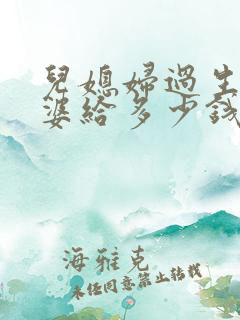 兒媳婦過生
婆給多少錢
海雅克
未經同意禁止轉載